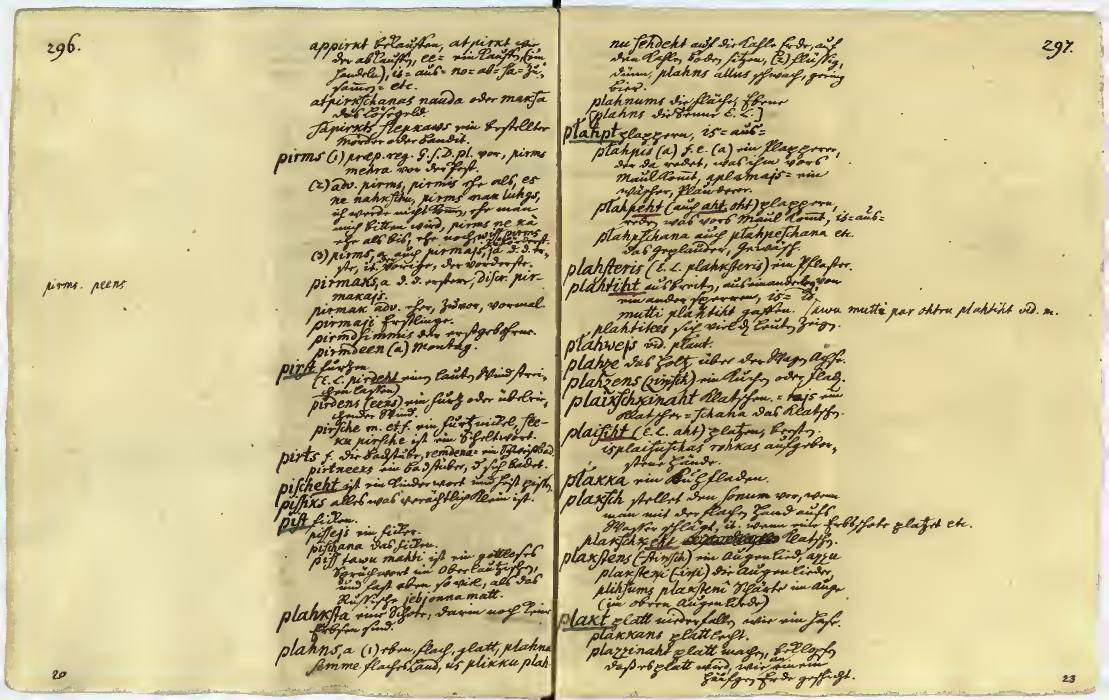 296.
appirkt belauffen, atpirkt wie,
der ablauffen, ee= einkauffen, (ein
handeln), is= aus= no= ab= sa= zu,
sam̄en= etc.
atpirkschanas nauda oder maksa
das Lösegeld.
Sapirkts slepkaws ein bestellter
Mörder oder Bandit.
pirms (1) præp. reg. G. s. D. pl. vor, pirms
mehra vor der Pest.
(2) adv. pirms, pirmis ehe als, es
ne nahkschu, pirms man luhgs,
ich werde nicht kom̄en, ehe man
mich bitten wird, pirms ne kà
ehe als bis, ehe noch,
(3) pirms, a auch pirmajs, ja d. d. er=
ste, it. Vorige, der vorderste.
pirmaks, a d. d. erstere, discr. pir=
makajs.
pirmak adv. eher, zuvor, vormal.
pirmaji Erstlinge.
pirmdsimmis der erstgebohrne.
pirmdeen (a) Montag.
pirst furtzen.
(E. L. pirdeht einen lauten Wind strei=
chen lassen)
pirdens (eens) ein furtz oder übelrie=
chender Wind.
pirsche m. et f. ein furtznickel, slee=
ku pirsche ist ein Scheltwort.
pirts f. die Badstube, remdena= ein Schweißbad
pirtneeks ein Badstüber, d. sich badet.
pischeht ist ein Kinderwort und heist pissen,
pischks alles was verächtlich klein ist.
pist ficken.
pissejs ein ficker.
pischana das ficken.
piss tawu mahti ist ein gottloses
Sprüchwort im Oberlautzischen,
und ist eben so viel, als das
Russische jebjonnamatt.
plahksta eine Schote, darin noch keine
Erbsen sind.
plahns, a (1) eben, flach, glatt, plahna
semme flaches Land, us plikku plah=
pirms. peens
20
297.
nu sehdeht auf die kahle Erde, auf
den kahlen Boden sitzen, (2) flüssig,
dünn, plahns allus schwach, gering
bier.
plahnums die fläche, Ebene
[plahns die Tenne E. L.]
plahpt plappern, is= aus=
plahpis (a) f. e. (a) ein Plapperer,
der da redet, was ihm vors
Maul kom̄t, aplamajs= ein
wäscher, Plauderer.
plahpeht (auch aht, oht) plappern,
reden was vors Maul kom̄t, is= aus=
plahpschana auch plahpeschana etc.
das Geplauder, Gewäsch.
plahsteris (E. L. plahksteris) ein Pflaster.
plahtiht ausbreiten, auseinanderlegen, von
einander sperren, is= id.
mutti plahtiht gaffen. (sawu mutti par ohtru plahtiht vid. m.
plahtitees sich viel zu lauten zeigen.
plahwejs vid. plaut.
plahze das Holtz über der Wagen Achse.
plahzens (zinsch) ein Kuchen oder flad.
plaikschkinaht klatschen. = tajs ein
Klatscher = schana das Klatschen.
plaisiht (E. L. aht) platzen, bersten.
isplaisijuschas rohkas aufgebor=
stene Hände.
plakka ein Kuhfladen.
plaksch stellet den sonum vor, wenn
man mit der flachen Hand aufs
Wasser schlägt, it. wenn eine Erbschote platzet etc.
plakschkeht klatschen.
plakstens (stinsch) ein Augenlied, apzu
plaksteni (ini) die Augenlieder
plihsums plakstenî Schärte im Auge
(im obern Augenliede)
plakt platt niederfallen wie ein Hase.
plakkans plattlecht.
plazzinaht platt machen, beklopfen
daß es platt wird, wie an einem
häufgen Erde geschicht.
23